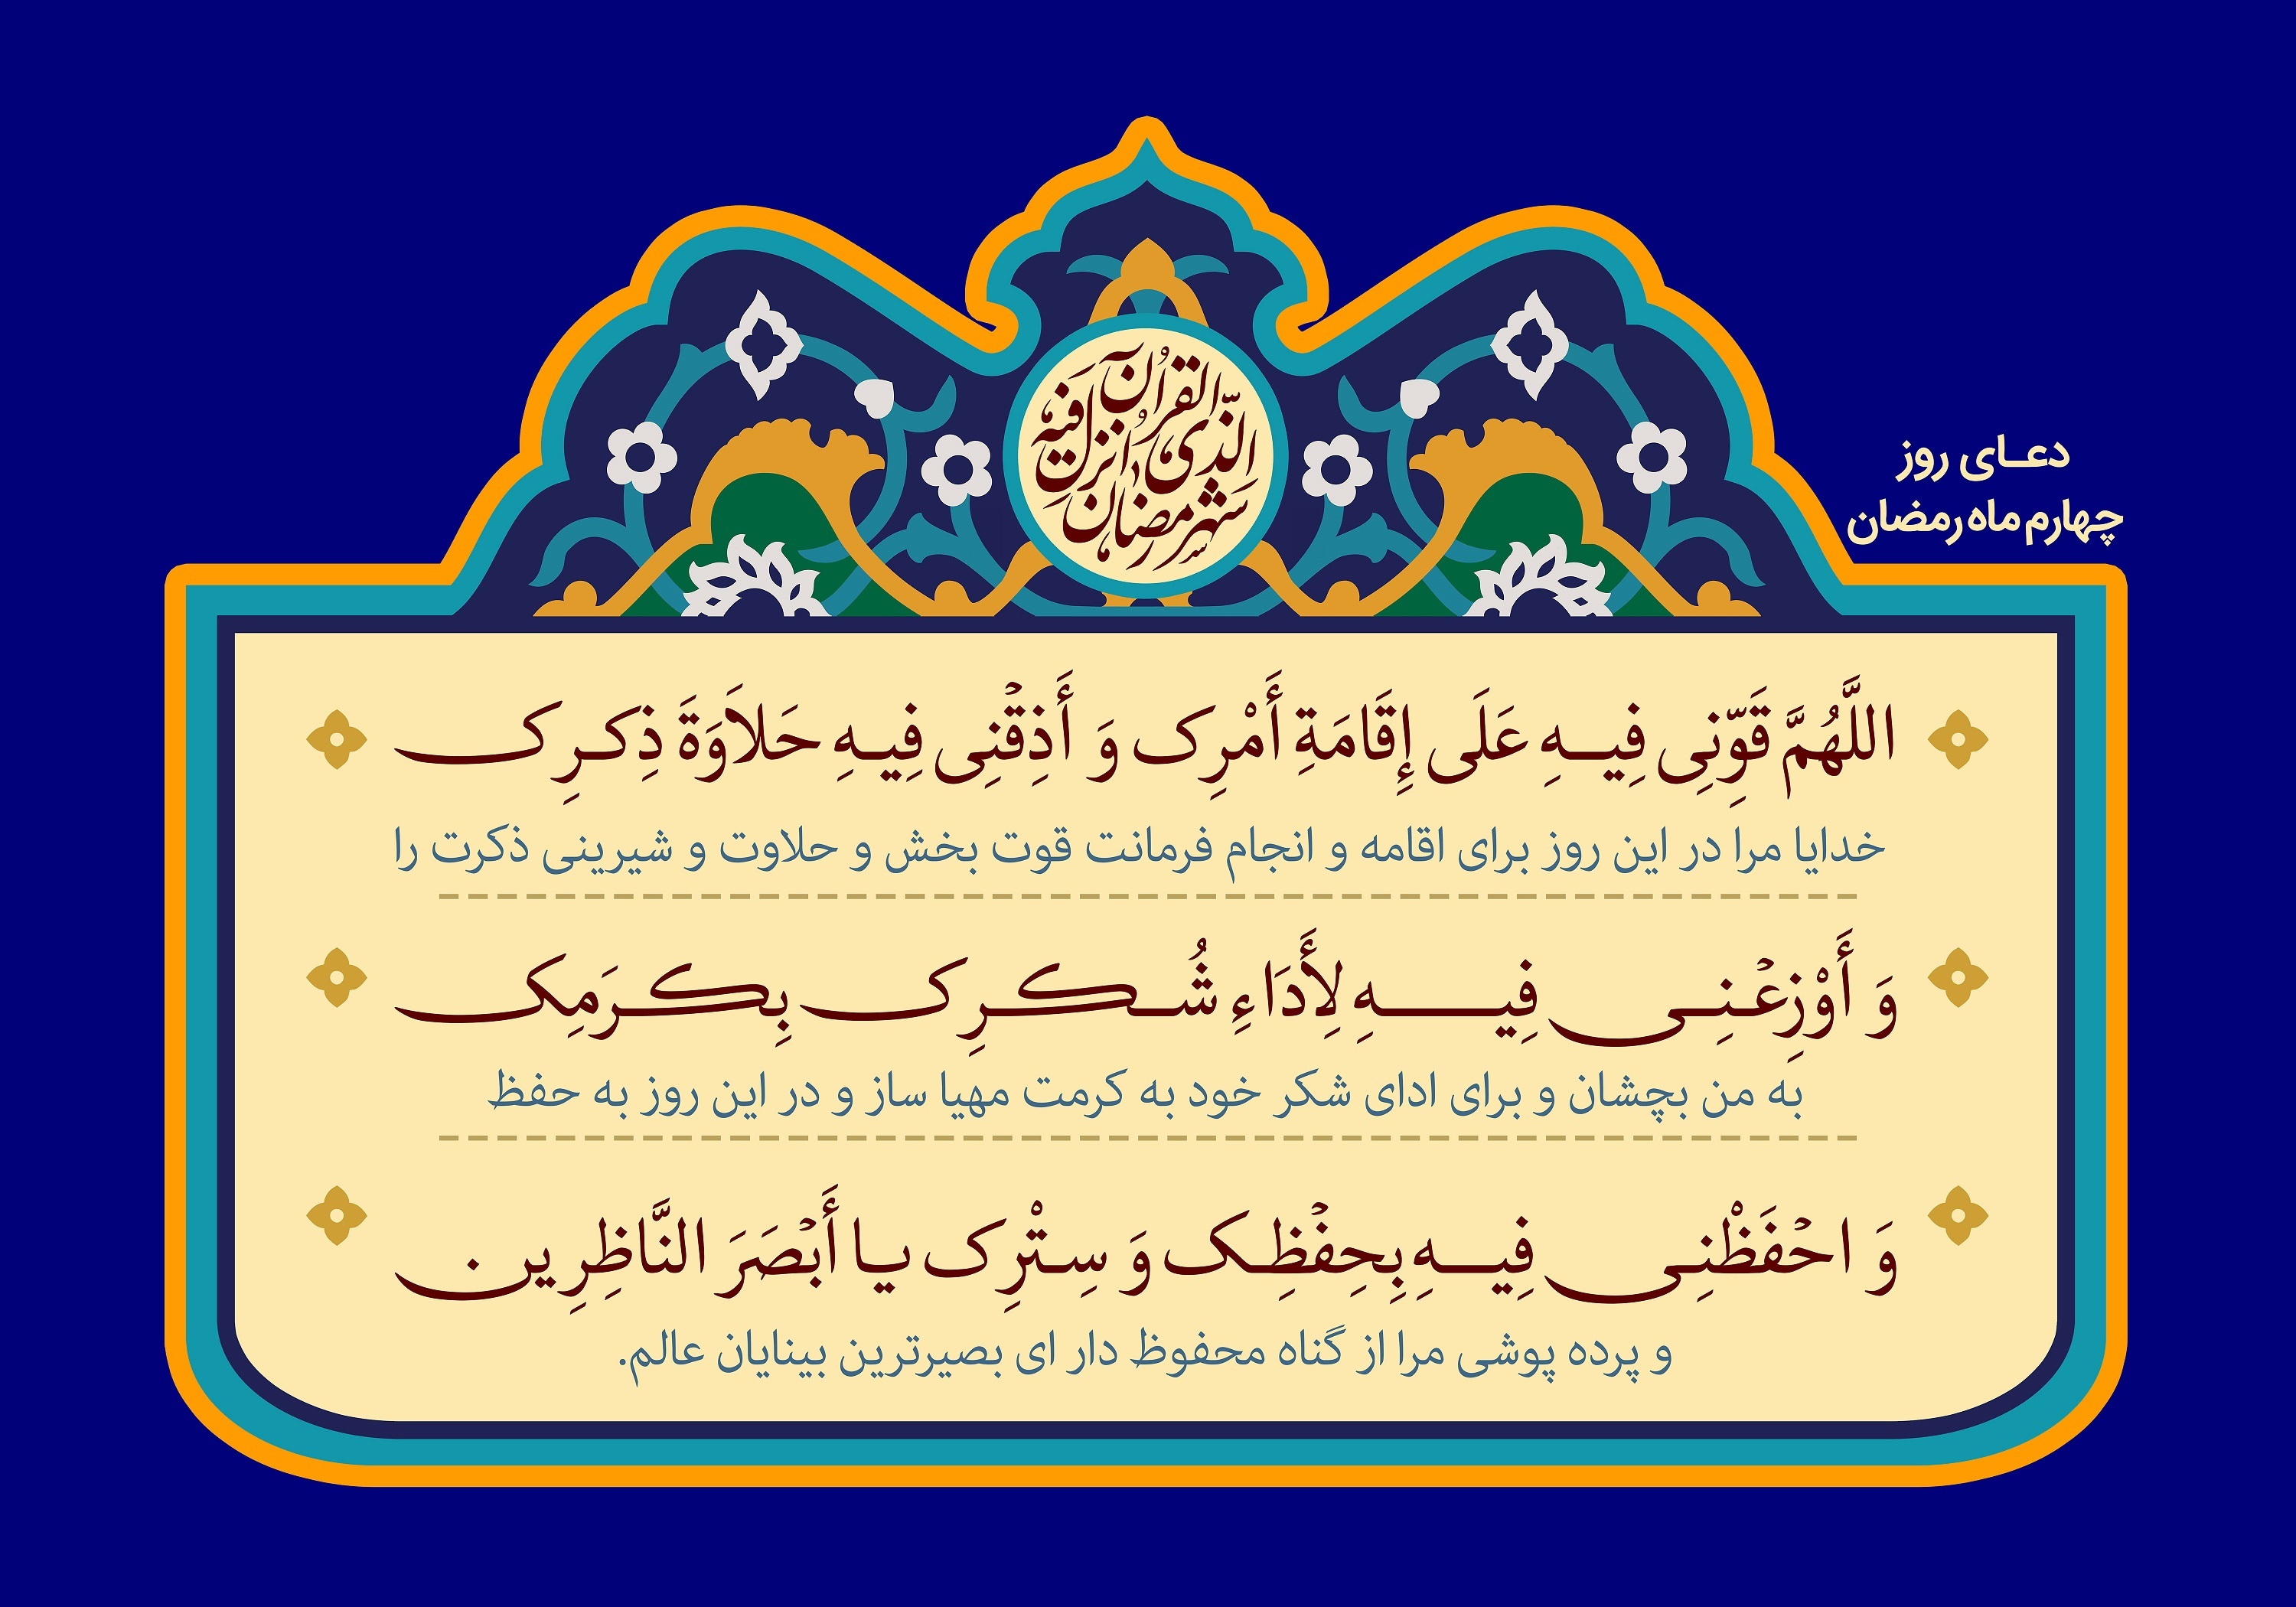 شَهْرُ رَمَضَانَ الَّذِی أُنْزِلَ فِیهِ الْقُرْآن
دعای روز
چهارم ماه رمضان
اللَّهُمَّ قَوِّنِی فِیهِ عَلَی إِقَامَةِ أَمْرِک وَ أَذِقْنِی فِیهِ حَلاَوَةَ ذِکرِک
خدایا مرا در این روز برای اقامه و انجام فرمانت قوت بخش و حلاوت و شیرینی ذکرت را
وَ أَوْزِعْنِی فِیهِ لِأَدَاءِ شُکرِک بِکرَمِک
به من بچشان و برای ادای شکر خود به کرمت مهیا ساز و در این روز به حفظ
وَ احْفَظْنِی فِیهِ بِحِفْظِک وَ سِتْرِک یا أَبْصَرَ النَّاظِرِین
و پرده پوشی مرا از گناه محفوظ دار ای بصیرترین بینایان عالم.